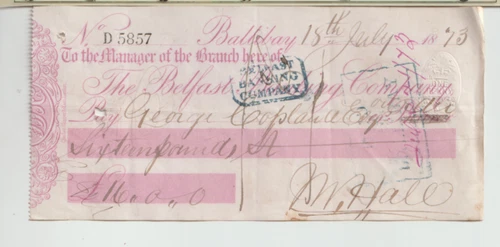 No. D 5857 Ballibay 18th July 1873
To the Manager of the Branch here of
The Belfast Banking Company,
BELFAST
BANKING
COMPANY
Pay George Copland Esq or order
Sixteen pounds St
£16.0.0
W. Hall